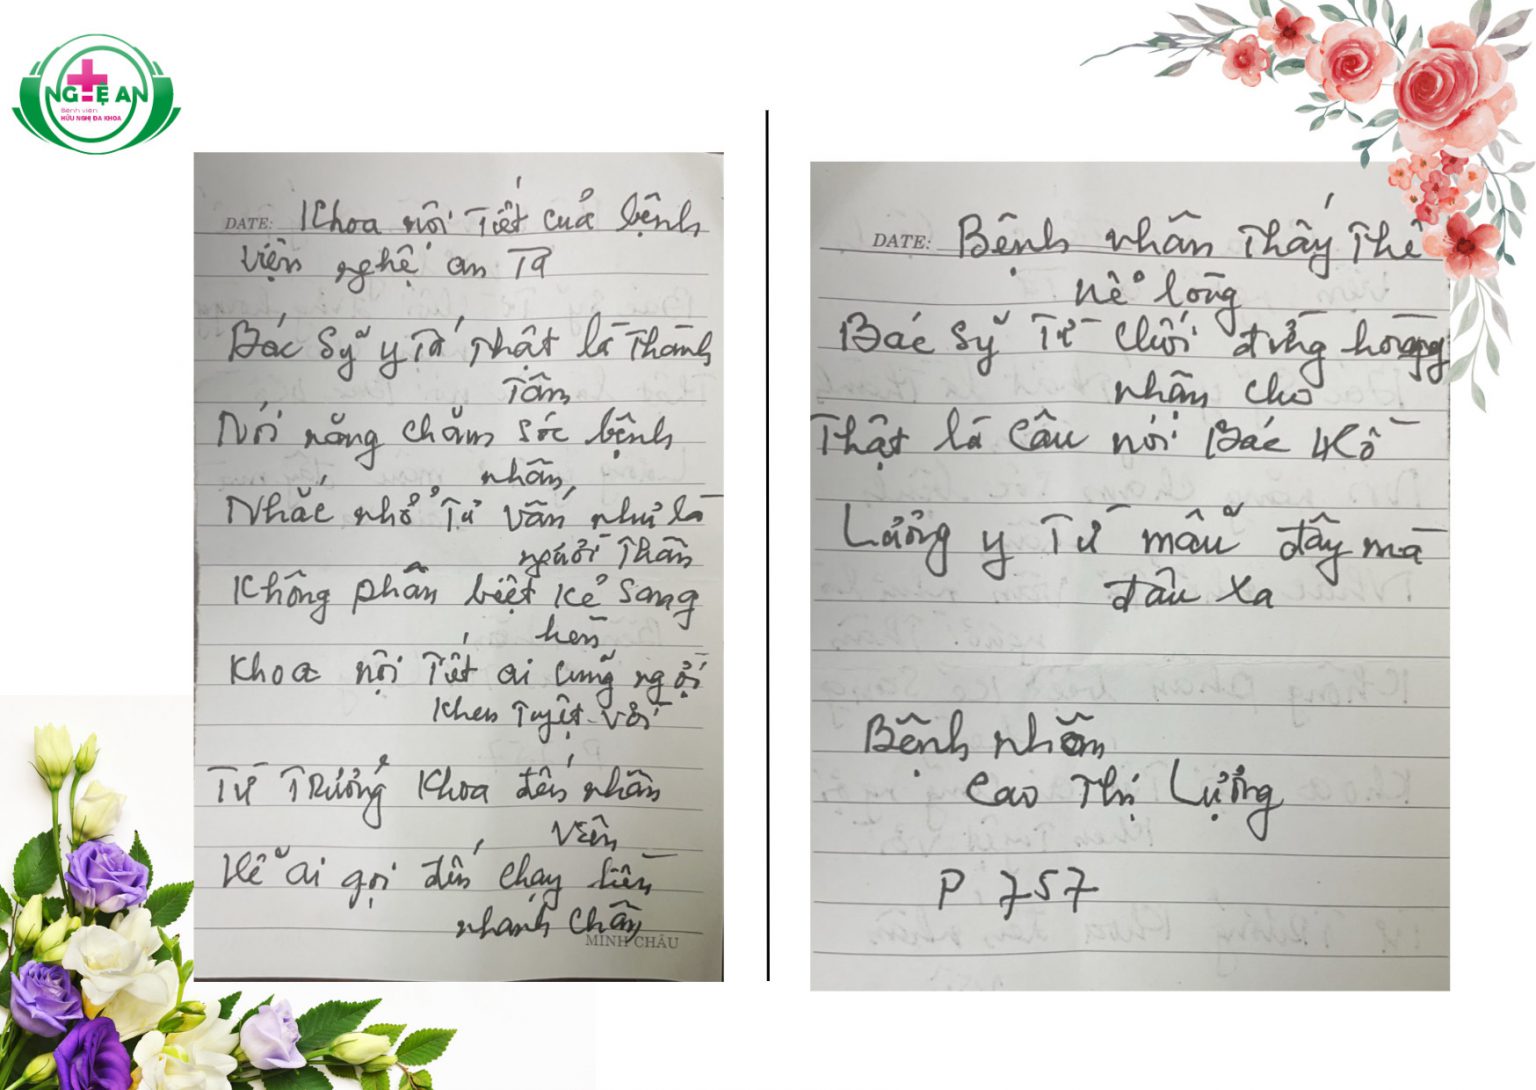 NGHỆ AN
Bệnh viện
HỮU NGHỊ ĐA KHOA
DATE: Khoa nội Tiết của bệnh
viện nghệ an Ta
Bác sỹ y Tá thật là Thành
Tâm
Nói năng chăm sóc bệnh
nhân,
Nhắc nhở Tư vấn như là
người Thân
Không phân biệt kẻ sang
hèn
Khoa nội Tiết ai cũng ngợi
khen Tuyệt vời
Từ Trưởng khoa đến nhân
viên
Hễ ai gọi đến chạy liền
nhanh chân
MINH CHÂU
DATE: Bệnh nhân Thấy Thế
nể lòng
Bác sỹ Từ chối đừng hòng
nhân cho
Thật là câu nói Bác Hồ
Lương y Từ mẫu đây mà
đâu xa
Bệnh nhân
Cao Thị Lượng
P 757